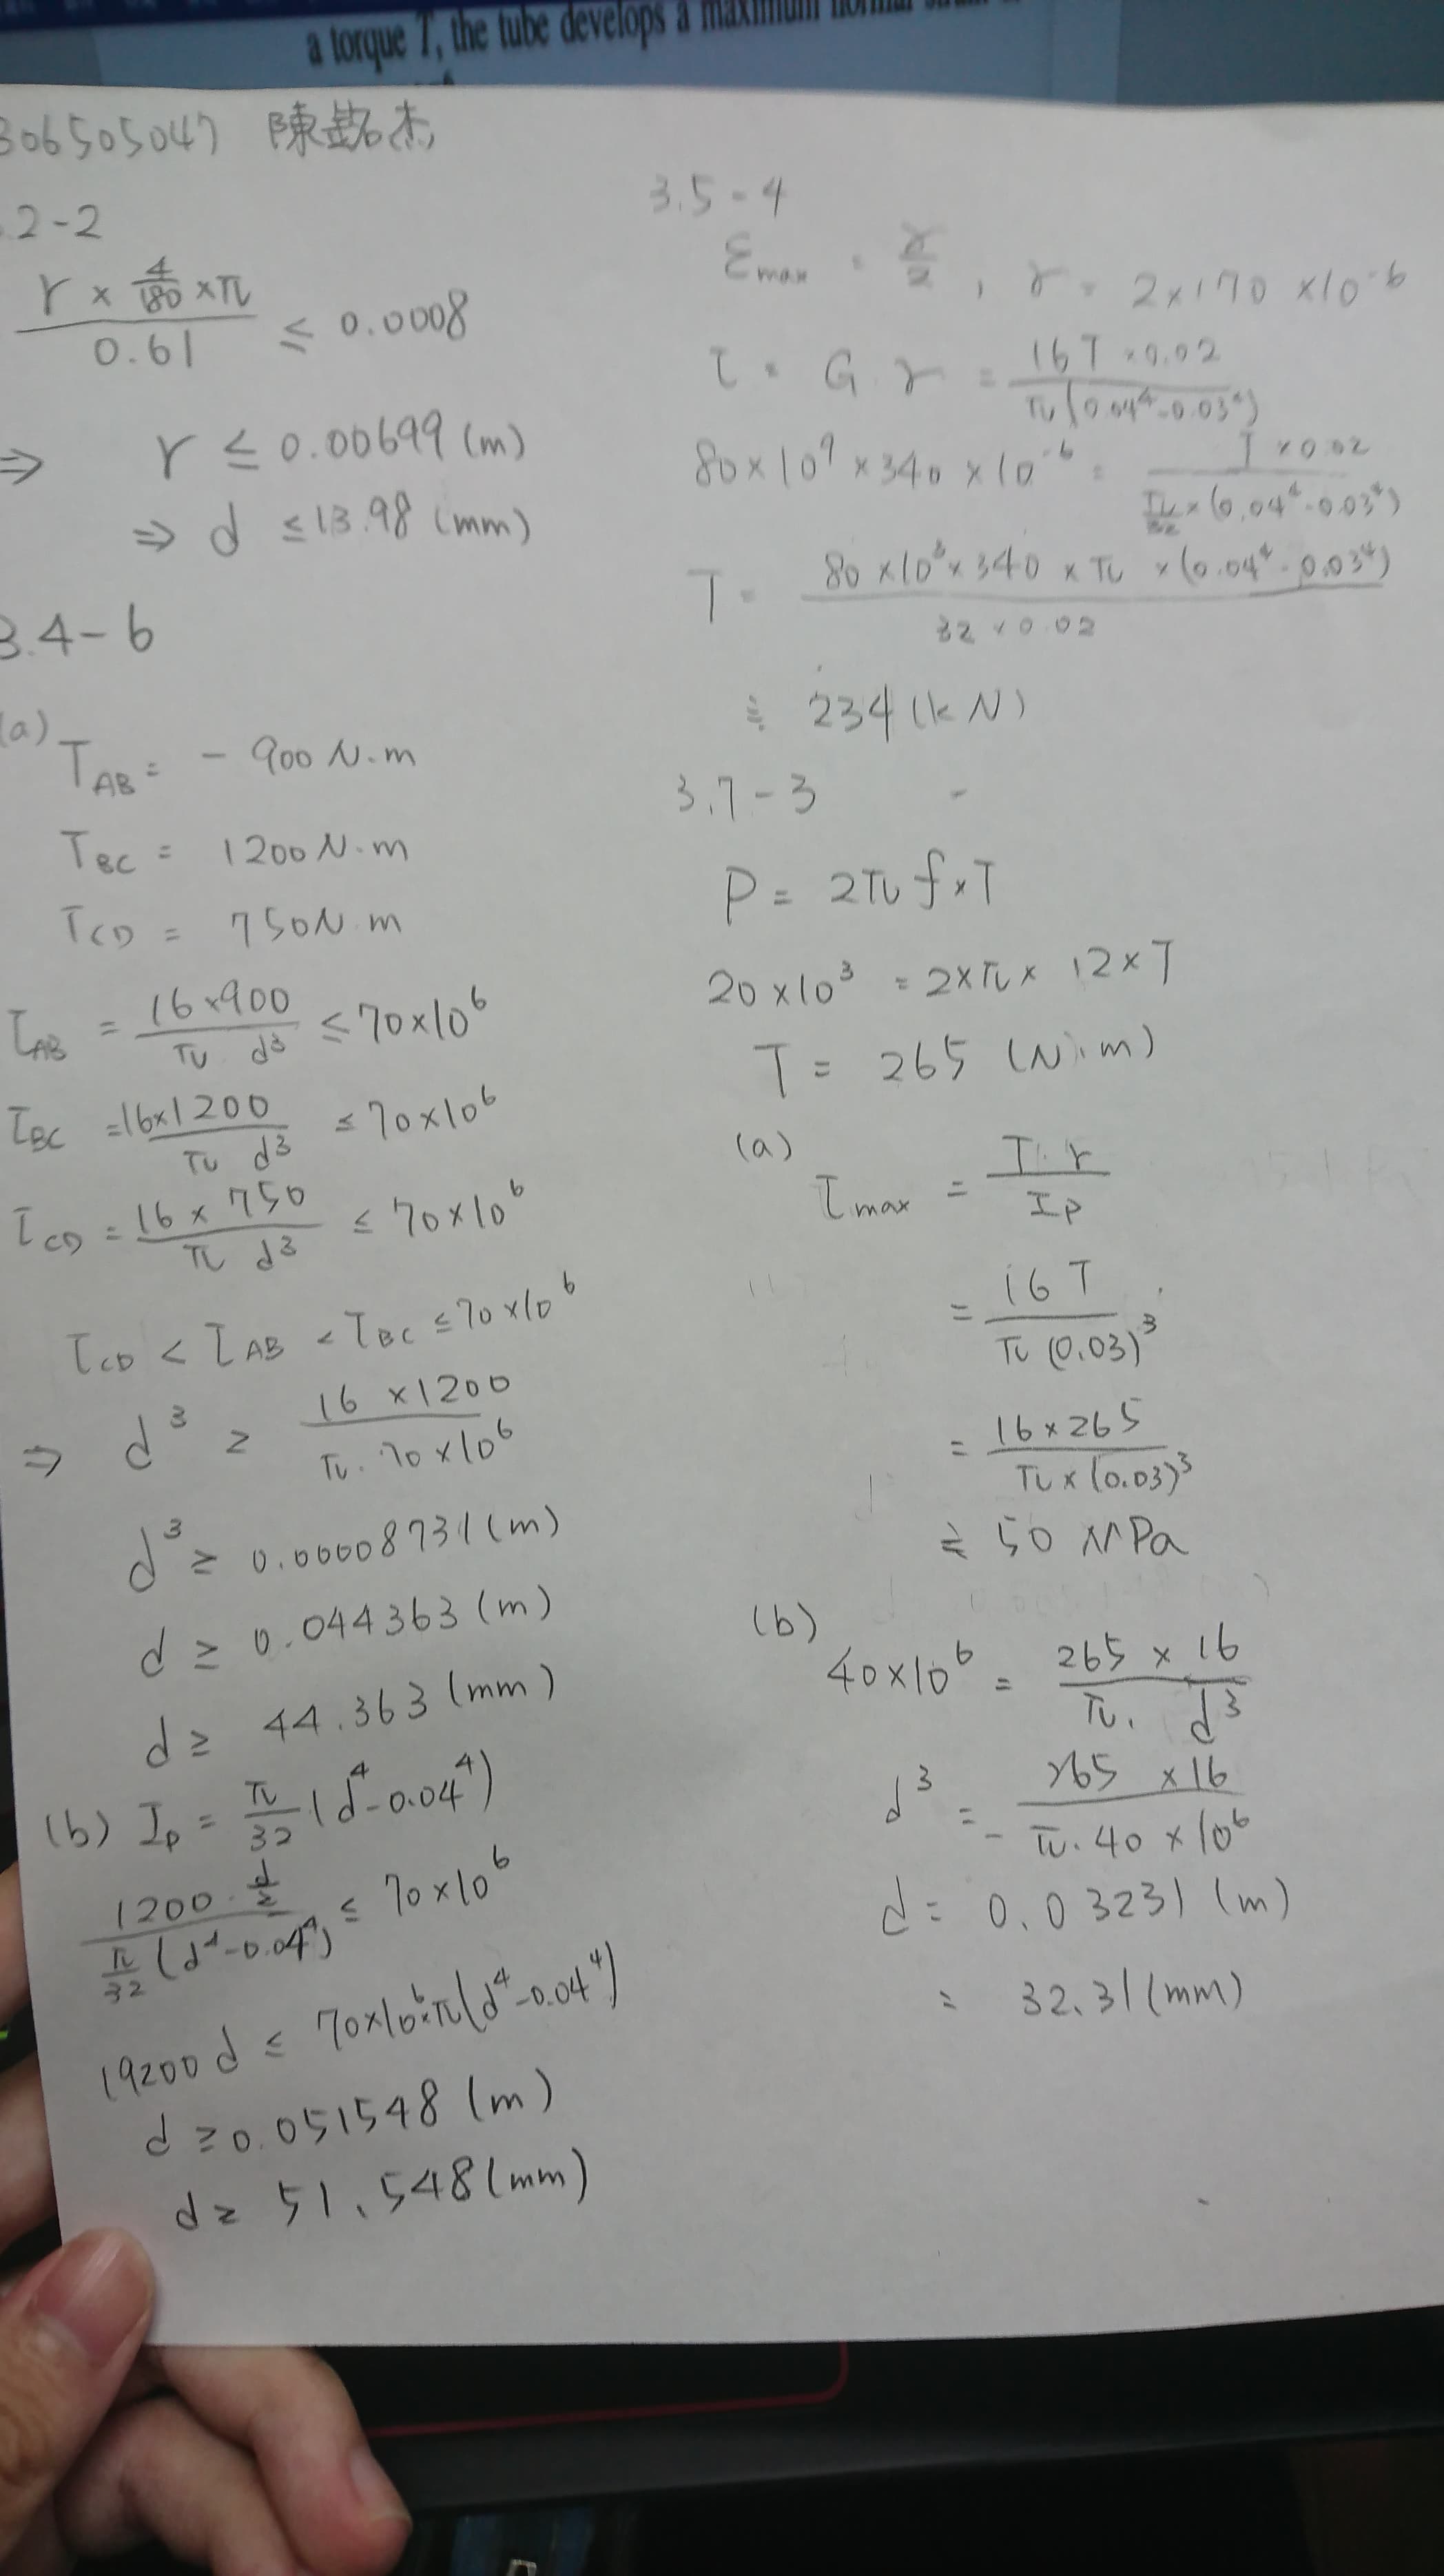 a torque T, the tube develops a maximum normal strain
306505047 陳銘杰
.2-2
r × 4/180 × π / 0.61 ≤ 0.0008
⇒ r ≤ 0.00699 (m)
⇒ d ≤ 13.98 (mm)
3.4-6
(a) T_AB = - 900 N.m
T_BC = 1200 N.m
T_CD = 750 N.m
τ_AB = 16×900 / π d³ ≤ 70×10⁶
τ_BC = 16×1200 / π d³ ≤ 70×10⁶
τ_CD = 16 × 750 / π d³ ≤ 70×10⁶
τ_CD < τ_AB < τ_BC ≤ 70×10⁶
⇒ d³ ≥ 16 ×1200 / π. 70×10⁶
d³ ≥ 0.00008731 (m)
d ≥ 0.044363 (m)
d ≥ 44.363 (mm)
(b) I_p = π/32 (d⁴-0.04⁴)
1200 . d/2 / π/32 (d⁴-0.04⁴) ≤ 70×10⁶
19200 d ≤ 70×10⁶×π(d⁴-0.04⁴)
d ≥ 0.051548 (m)
d ≥ 51.548 (mm)
3.5-4
ε_max = γ/2 , γ = 2×170 ×10⁻⁶
τ = G.γ = 16T ×0.02 / π(0.04⁴-0.03⁴)
80×10⁹×340×10⁻⁶ = T ×0.02 / π/32 ×(0.04⁴-0.03⁴)
T = 80×10³×340×π×(0.04⁴-0.03⁴) / 32×0.02
≒ 234 (kN)
3.7-3
P = 2π f×T
20×10³ = 2×π× 12×T
T = 265 (N.m)
(a) τ_max = T.r / I_P
= 16T / π(0.03)³
= 16×265 / π×(0.03)³
≒ 50 MPa
(b) 40×10⁶ = 265 × 16 / π. d³
d³ = 265 ×16 / π.40×10⁶
d = 0.03231 (m)
= 32.31 (mm)